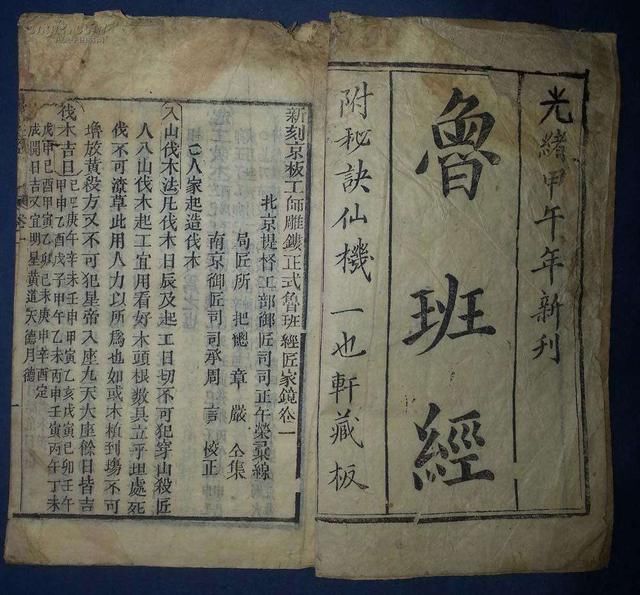 光緒甲午年新刊
魯班經
附秘訣仙機 一也軒藏板
新刻京板工師雕鏤正式魯班經匠家鏡卷一
北京提督工部御匠司司正午榮彙編
局匠所把總章嚴仝集
南京御匠司司承周言校正
人家起造伐木
入山伐木法凡伐木日辰及起工日切不可犯穿山殺匠
人入山伐木起工宜用看好木頭根數具立平坦處
伐不可潦草此用人力以所爲也如或木植到塲不可
堆放黃殺方又不可犯星帝入座九天大座餘日皆吉
伐木吉日己巳庚午辛未壬申甲寅乙亥戊寅己卯壬午
甲申乙酉戊子甲午乙未丙申壬寅丙午丁未
戊申己酉甲寅乙卯己未庚申辛酉定
成開日吉又宜明星黃道天德月德